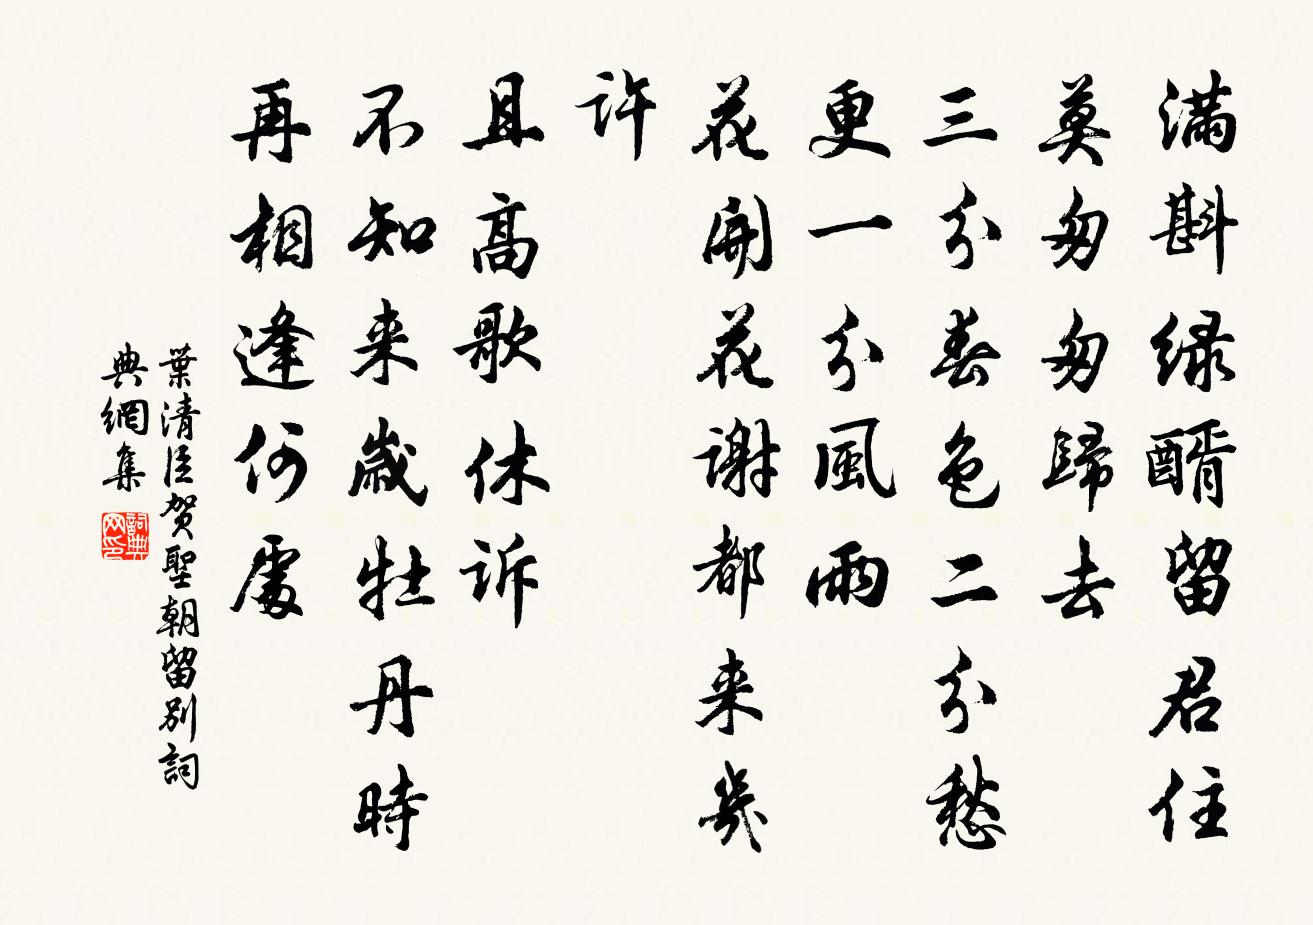 满斟緑醑留君住
莫匆匆歸去
三分春色二分愁
更一分風雨
花開花謝都来幾
許
且高歌休訴
不知来歳牡丹時
再相逢何處
葉清臣贺聖朝留別詞
典網集
詞典網印